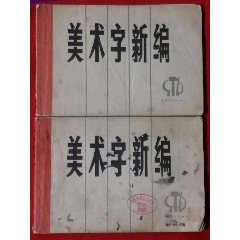 美术字新编
美术字新编